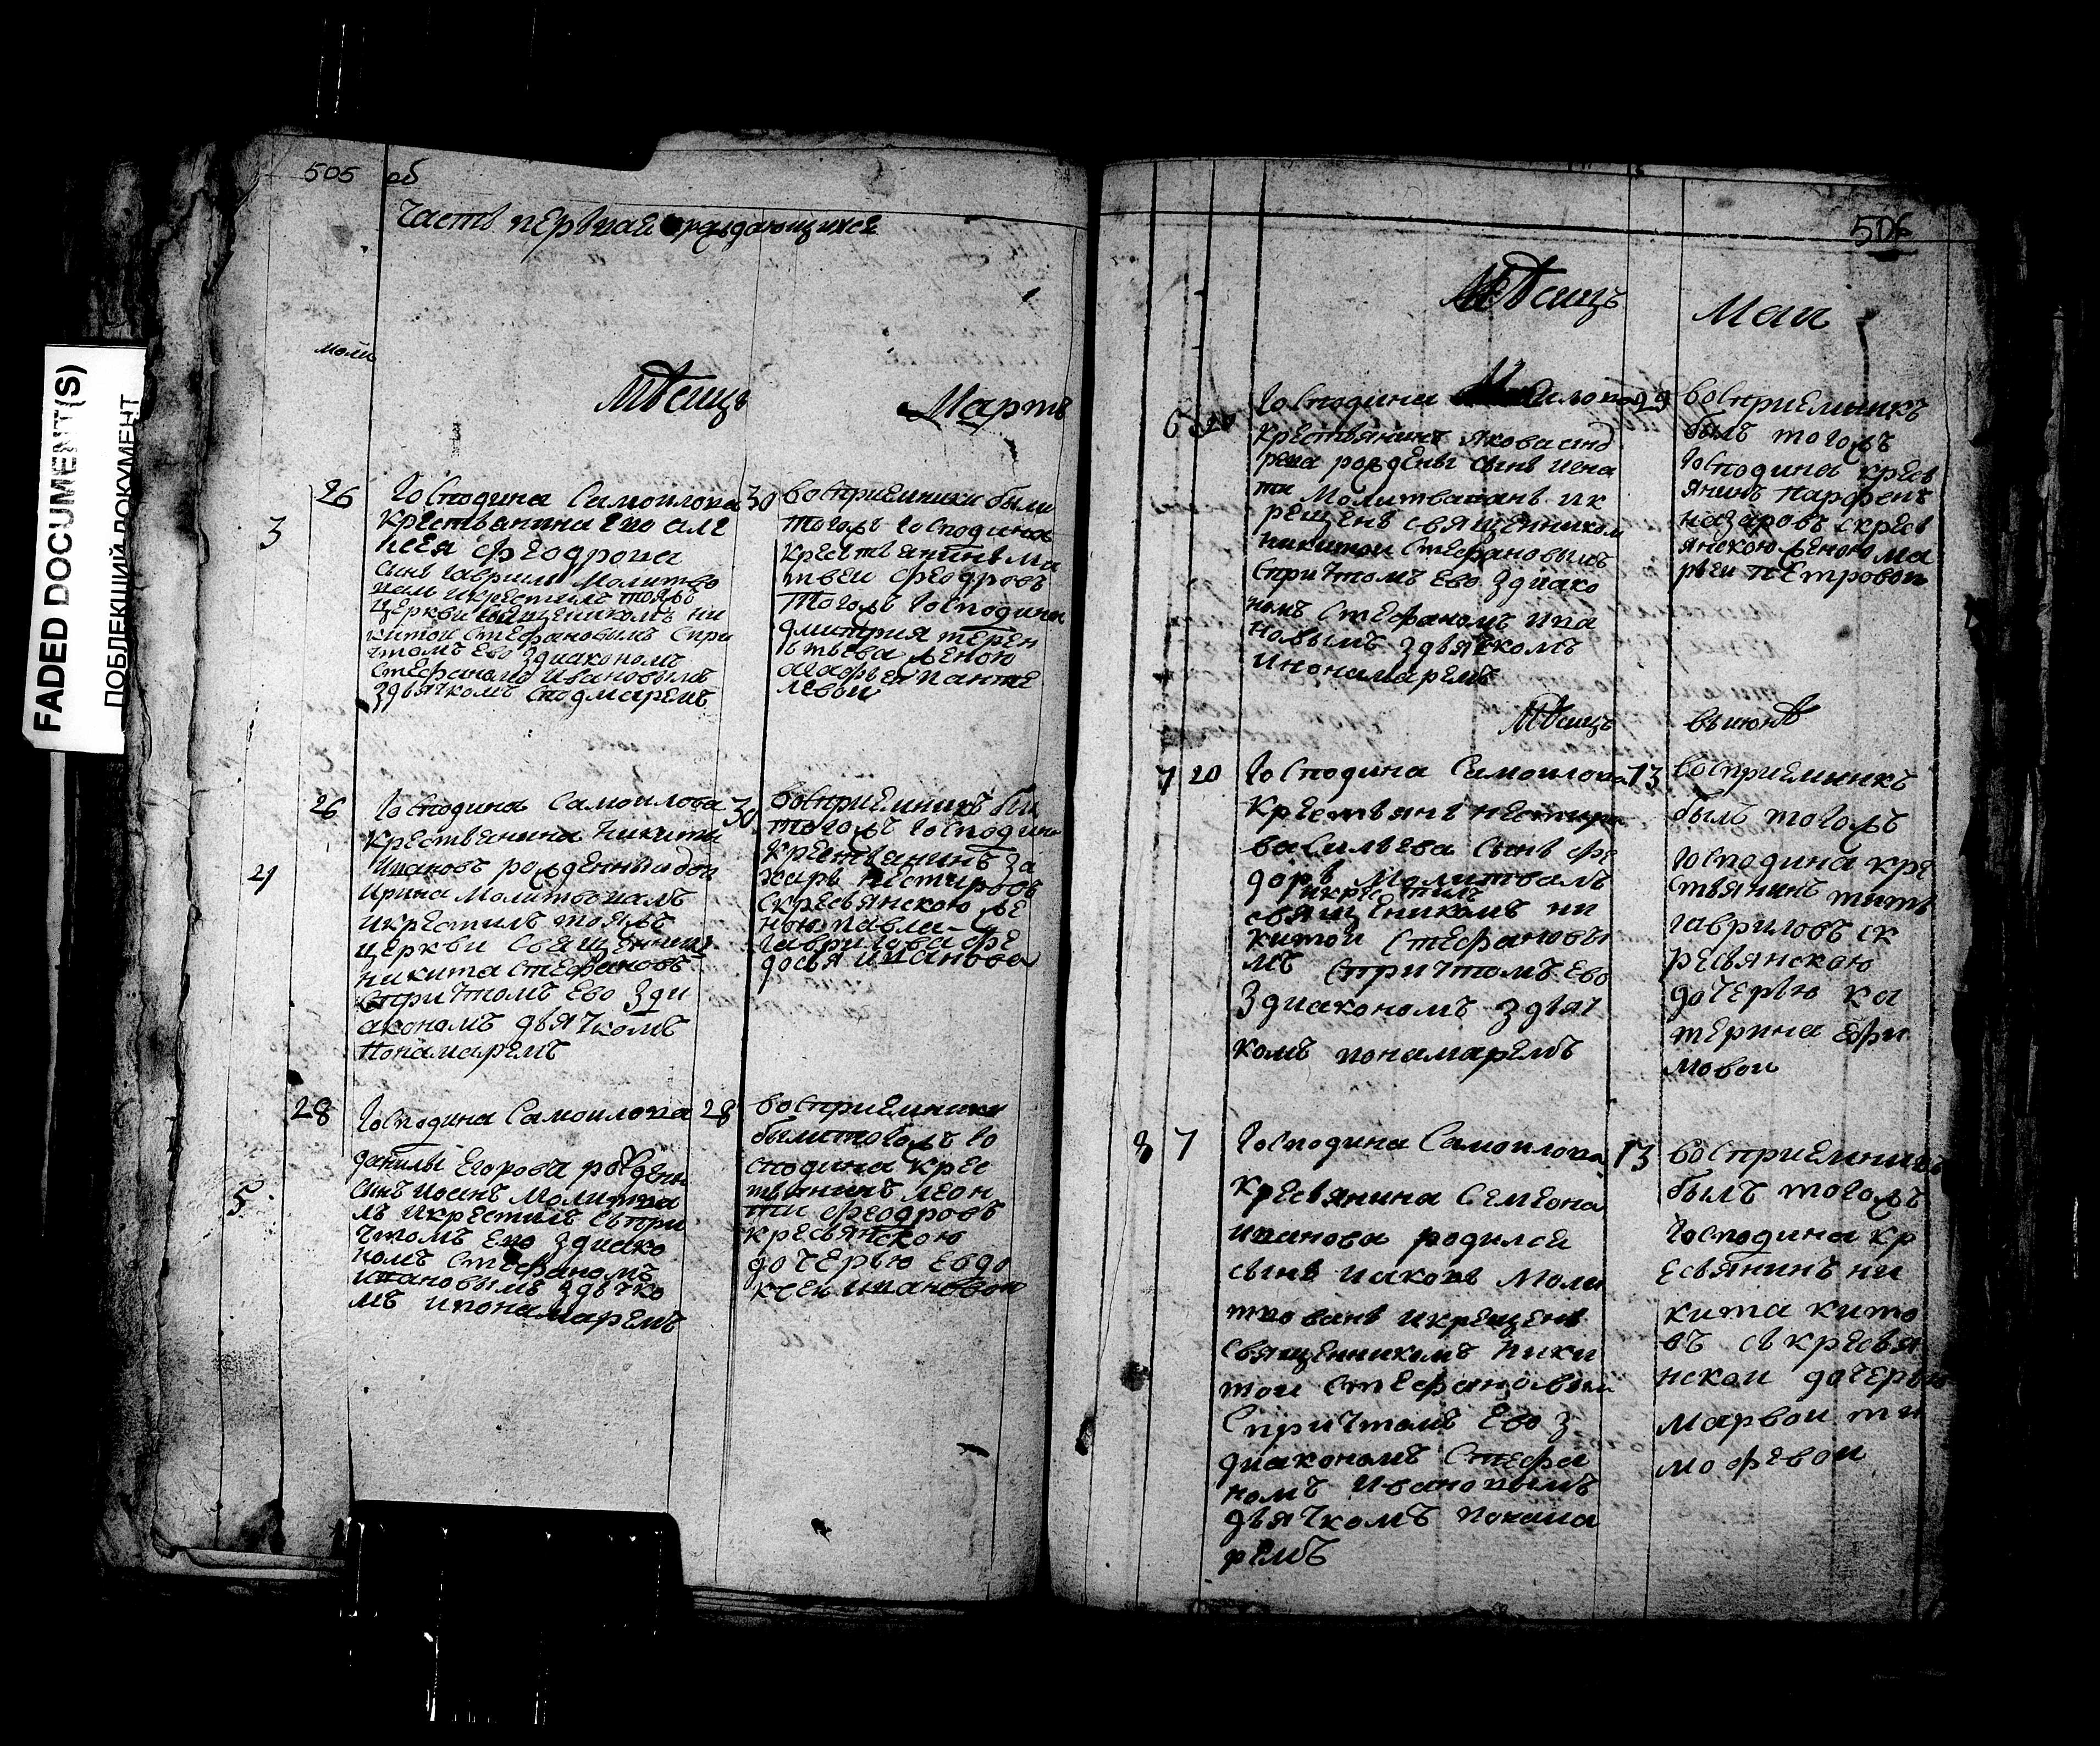 FADED DOCUMENT(S)
ПОБЛЕКШИЙ ДОКУМЕНТ
505 об
Часть первая ораждающихся
моли
Мѣсицъ Мартъ
3
26
Господина Самоилова
крестьянина ево але
ѯея феодрова
сынъ гаврилъ Молитво
валъ икрестилъ тояжъ
церкви священикомъ ни
китои стефановымъ спри
чтомъ ево здиакономъ
стефаномъ ивановымъ
здьячкомъ
30
восприемники были
тогожъ господина
крестьянинъ ма
твеи феодровъ
тогожъ господина
дмитрия терен
тьева женою
агафьеи панте
левои
4
26
Господина Самоилова
крестьянина никиты
ивановъ рожденна доч
ирина молитвовалъ
икрестилъ тояжъ
церкви священникъ
никита стефановъ
спричтомъ ево зди
акономъ дьячкомъ
понамаремъ
30
восприемникъ бы
тогожъ господина
крестьянинъ за
харъ нестировъ
скресьянскою же
ною павла
гаврилова фе
досья иванова
5
28
Господина Самоилова
данилы егорова рожденъ
сынъ Молитвова
лъ икрестилъ спри
чтомъ ево здиако
номъ стефаномъ
ивановымъ здьячко
мъ ипонамаремъ
28
восприемники
былитогожъ го
сподина крес
тьянинъ леон
ти феодровъ
кресьянскою
дочерью евдо
кѣеи ивановои
506
Мѣсицъ Маи
6
Господина Самоилова
крестьянинъ якова анд
реева рожденъ сынъ игна
ти Молитвованъ ик
рещенъ священникомъ
никитои Стефановымъ
спричтомъ ево здиако
номъ Стефаномъ ива
новымъ здьячкомъ
ипонамаремъ
29
восприемникъ
былъ тогожъ
господина кресь
янинъ парфенъ
назаровъ скресь
янскою женою ма
рьеи петровои
Мѣсицъ вьиюнѣ
7
20
Господина Самоилова
крестьянъ нестира
васильева сынъ фе
доръ Молитвалъ
икрестилъ
священикомъ ни
китои Стефановы
мъ спричтомъ ево
здиакономъ здьяч
комъ понамаремъ
13
восприемникъ
былъ тогожъ
господина кре
стьянинъ титъ
гавриловъ ск
ресьянскою
дочерью ка
терина ефи
мовои
8
7
Господина Самоилова
кресьянина Семеона
иванова родился
сынъ иаковъ Моли
твованъ икрещенъ
священникомъ ники
тои стефановым
спричтомъ ево з
диакономъ Стефа
номъ ивановымъ
дьячкомъ понама
ремъ
13
восприемникъ
былъ тогожъ
господина кр
есьянинъ ни
кита кито
въ съкресья
нскои дочерью
марвои ти
мофевои